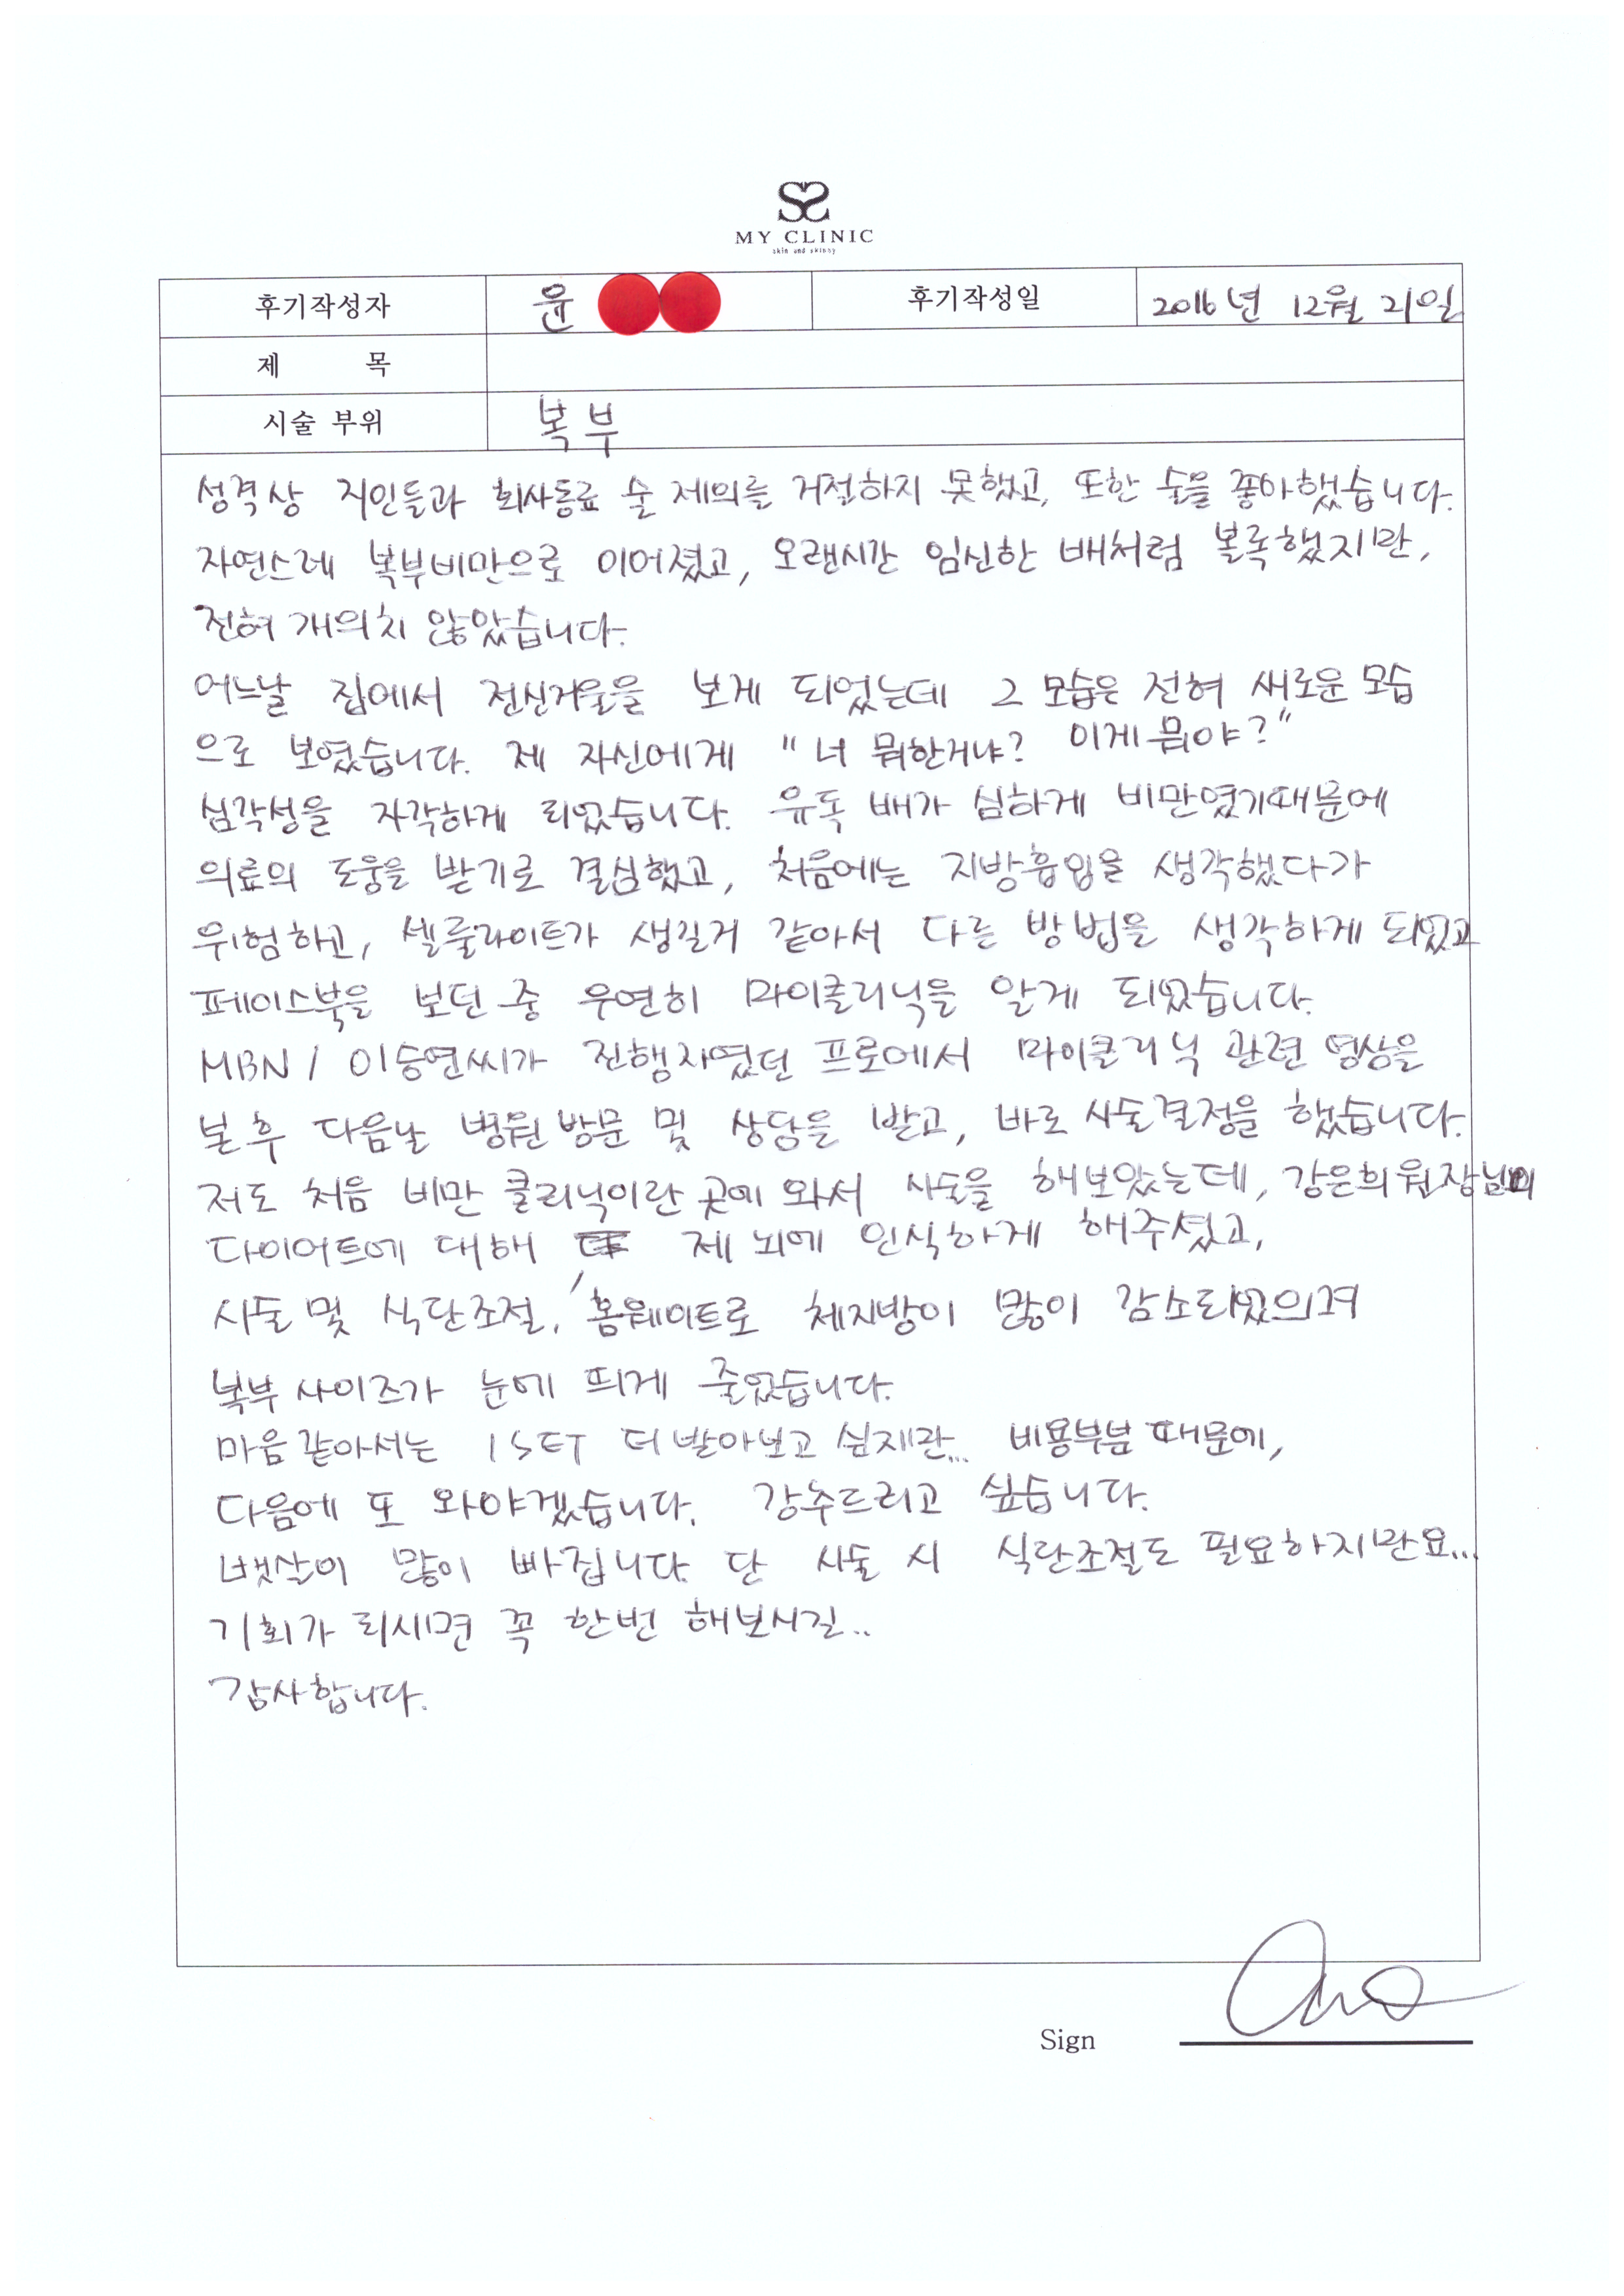 MY CLINIC
skin and skinny
후기작성자 윤 후기작성일 2016년 12월 21일
제 목
시술 부위 복부
성격상 지인들과 회사동료 술 제의를 거절하지 못했고, 또한 술을 좋아했습니다.
자연스레 복부비만으로 이어졌고, 오랜시간 임신한 배처럼 볼록했지만,
전혀 개의치 않았습니다.
어느날 집에서 전신거울을 보게 되었는데 그 모습은 전혀 새로운 모습
으로 보였습니다. 제 자신에게 "너 뭐한거냐? 이게 뭐야?"
심각성을 자각하게 되었습니다. 유독 배가 심하게 비만였기때문에
의료의 도움을 받기로 결심했고, 처음에는 지방흡입을 생각했다가
위험하고, 셀룰라이트가 생길거 같아서 다른 방법을 생각하게 되었고
페이스북을 보던 중 우연히 마이클리닉을 알게 되었습니다.
MBN / 이승연씨가 진행자였던 프로에서 마이클리닉 관련 영상을
본 후 다음날 병원 방문 및 상담을 받고, 바로 시술결정을 했습니다.
저도 처음 비만 클리닉이란 곳에 와서 시술을 해보았는데, 강은희 원장님의
다이어트에 대해 제 뇌에 인식하게 해주셨고,
시술 및 식단조절, 홈웨이트로 체지방이 많이 감소되었으며
복부 사이즈가 눈에 띄게 줄었습니다.
마음 같아서는 1SET 더 받아보고 싶지만... 비용부분 때문에,
다음에 또 와야겠습니다. 강추드리고 싶습니다.
뱃살이 많이 빠집니다. 단 시술 시 식단조절도 필요하지만요...
기회가 되시면 꼭 한번 해보시길..
감사합니다.
Sign